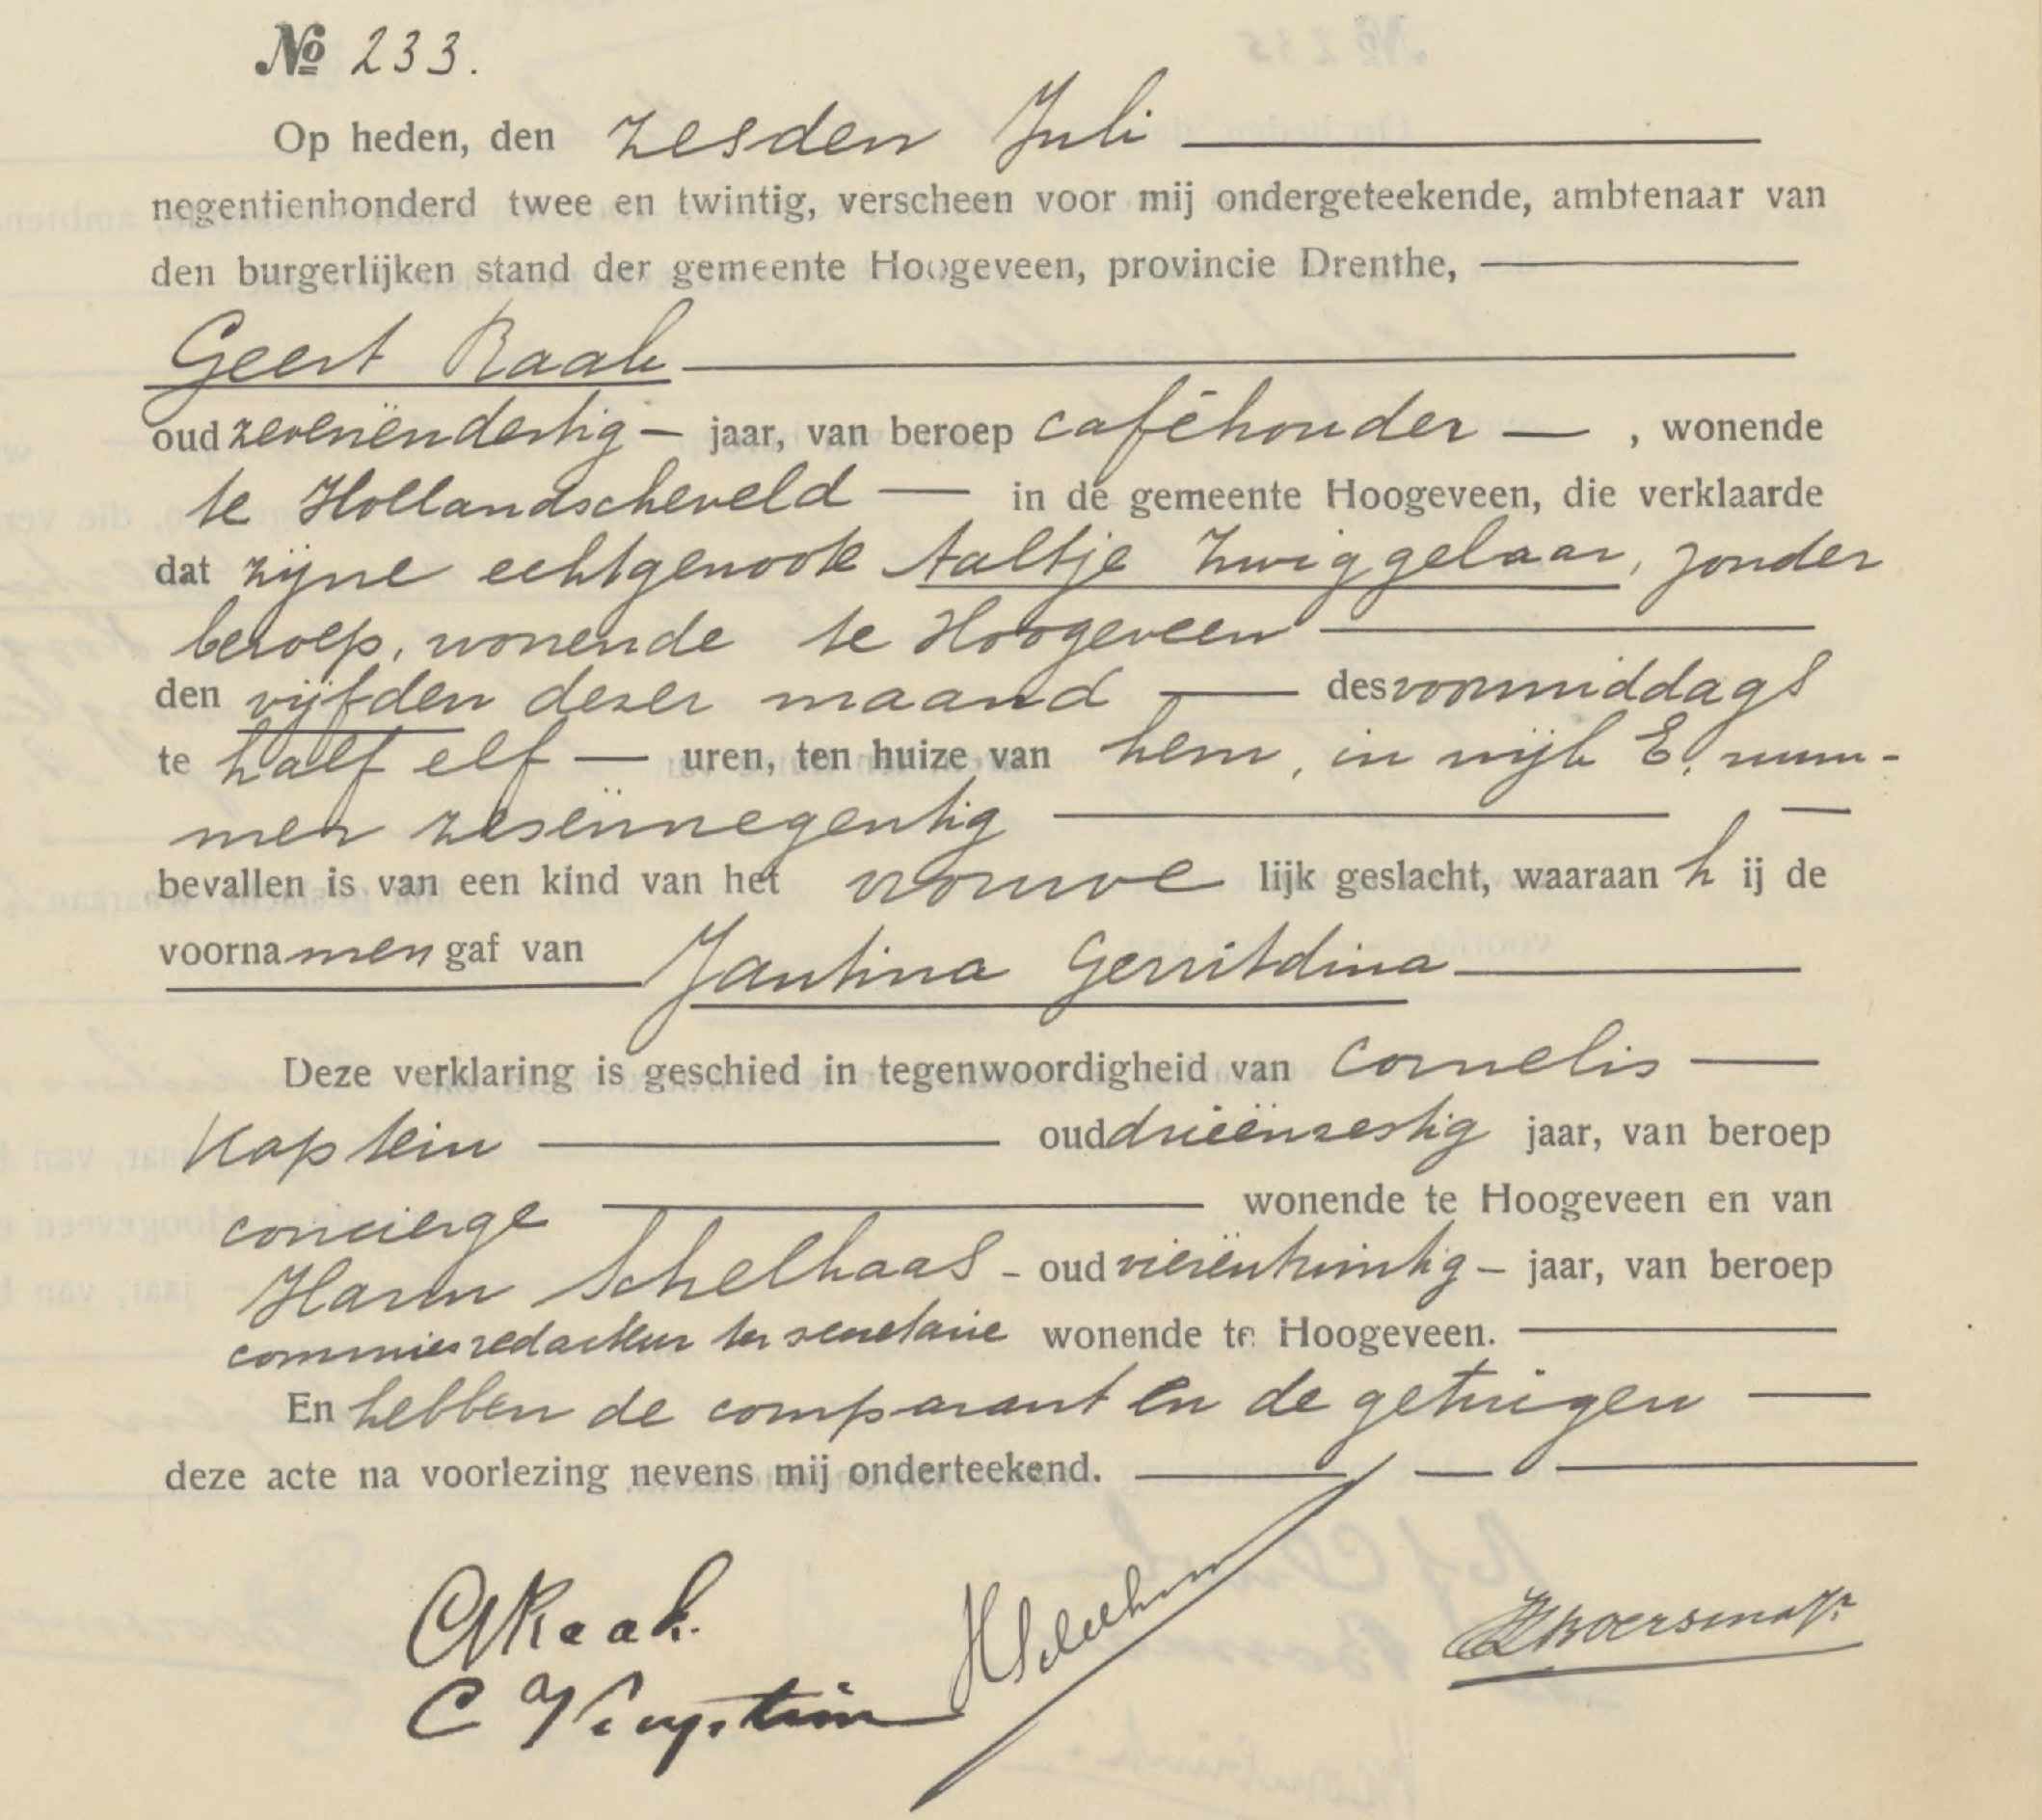 № 233.
Op heden, den zesden Juli
negentienhonderd twee en twintig, verscheen voor mij ondergeteekende, ambtenaar van
den burgerlijken stand der gemeente Hoogeveen, provincie Drenthe,
Geert Raak
oud zevenëndertig – jaar, van beroep caféhouder — , wonende
te Hollandscheveld — in de gemeente Hoogeveen, die verklaarde
dat zijne echtgenoote Aaltje Zwiggelaar, zonder
beroep, wonende te Hoogeveen
den vijfden dezer maand — des voormiddags
te half elf — uren, ten huize van hem, in wijk E, num-
mer zesënnegentig
bevallen is van een kind van het vrouwe lijk geslacht, waaraan h ij de
voornamen gaf van Jantina Gerritdina
Deze verklaring is geschied in tegenwoordigheid van Cornelis —
Kaptein oud drieënzestig jaar, van beroep
concierge wonende te Hoogeveen en van
Harm Schelhaas - oud vierëntwintig – jaar, van beroep
commies redacteur ter secretarie wonende te Hoogeveen.
En hebben de comparant en de getuigen —
deze acte na voorlezing nevens mij onderteekend.
GRaak.
C Kaptein